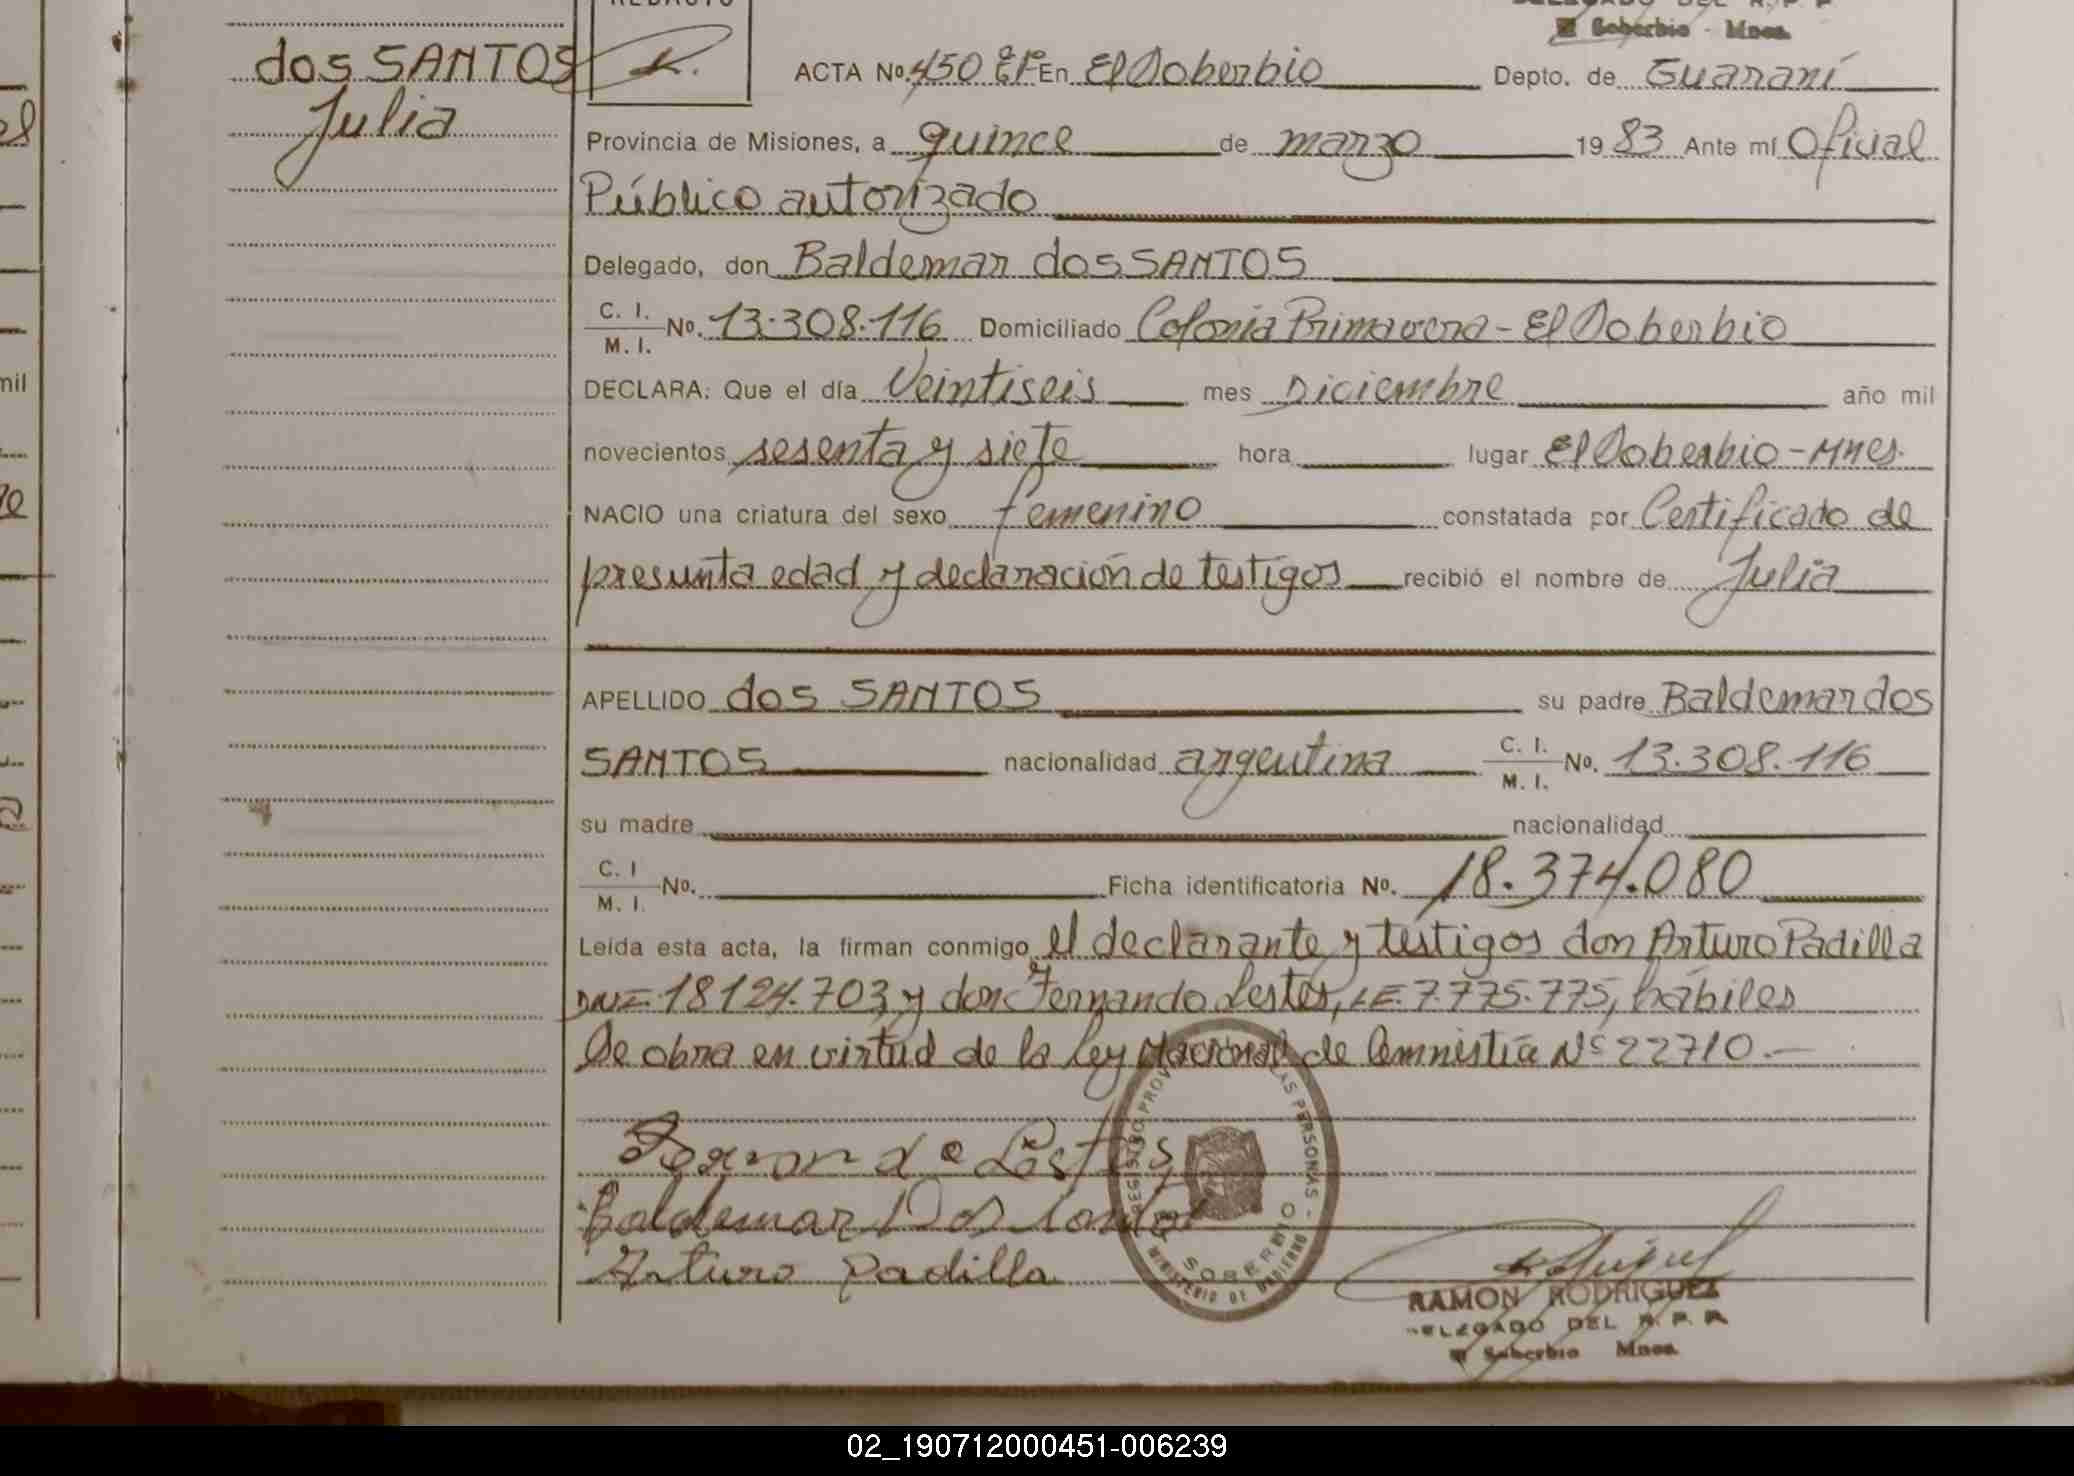 Soberbio - Mnes.
dos SANTOS
Julia
ACTA Nº. 450 En El Soberbio Depto. de Guaraní
Provincia de Misiones, a quince de marzo 1983 Ante mí Oficial
Público autorizado
Delegado, don Baldemar dos SANTOS
C. I.
M. I.
Nº. 13.308.116 Domiciliado Colonia Primavera - El Soberbio
DECLARA: Que el día Veintiseis mes Diciembre año mil
novecientos sesenta y siete hora lugar El Soberbio - Mnes.
NACIO una criatura del sexo femenino constatada por Certificado de
presunta edad y declaración de testigos recibió el nombre de Julia
APELLIDO dos SANTOS su padre Baldemar dos
SANTOS nacionalidad argentina C. I. M. I. Nº. 13.308.116
su madre nacionalidad
C. I
M. I.
Nº. Ficha identificatoria Nº. 18.374.080
Leída esta acta, la firman conmigo el declarante y testigos don Arturo Padilla
DNI 18124.703, y don Fernando Lestes, LE. 7.775.775, hábiles
Se obra en virtud de la Ley Nacional de Amnistía Nº 22710.-
Fernando Lestes
Baldemar Dos Santos
Arturo Padilla
SOBERBIO
MINISTERIO DE GOBIERNO
RAMON RODRIGUEZ
DELEGADO DEL R. P. P.
El Soberbio Mnes.
02_190712000451-006239